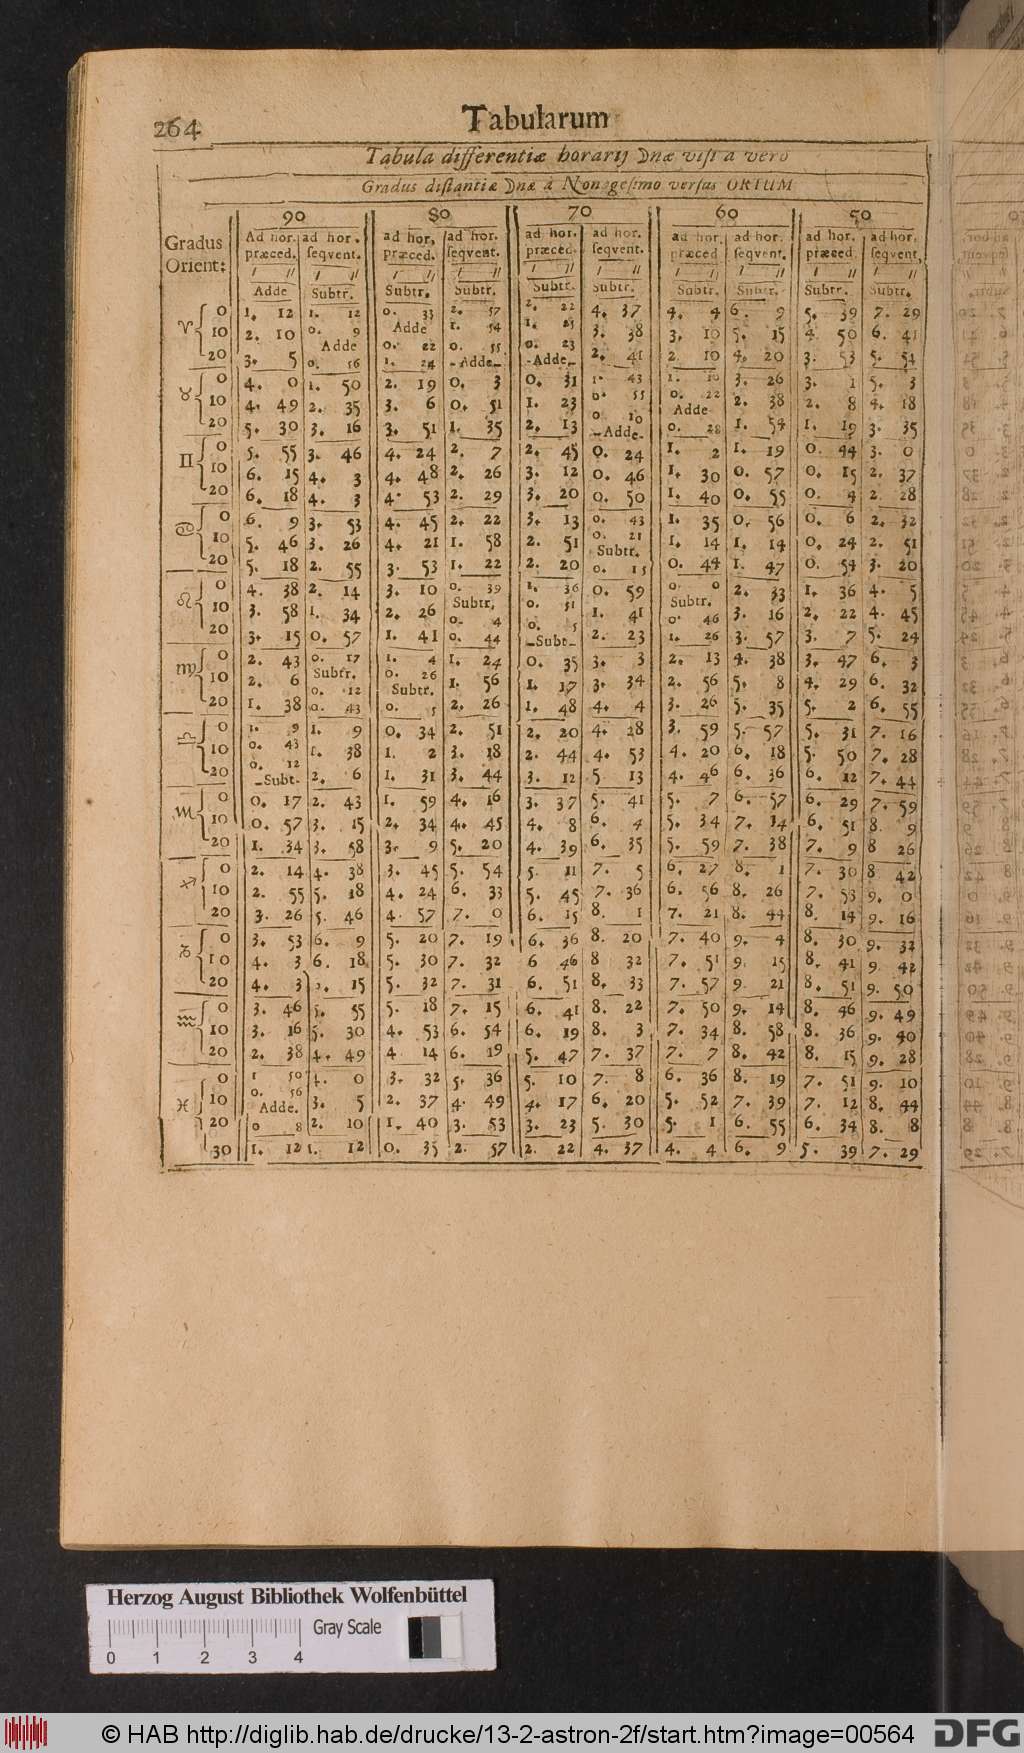 264
Tabularum
Tabula differentiæ horarij ☽næ visi a vero
Gradus distantiæ ☽næ à Nonagesimo versus ORTUM
90 80 70 60 50
Gradus Orient: Ad hor. præced. ad hor. seqvent. ad hor. præced. ad hor. seqvent. ad hor. præced. ad hor. seqvent. ad hor. præced ad hor. seqvent. ad hor. præced ad hor. seqvent.
ı ıı ı ıı ı ıı ı ıı ı ıı ı ıı ı ıı ı ıı ı ıı ı ıı
Adde Subtr. Subtr. Subtr. Subtr. Subtr. Subtr. Subtr. Subtr. Subtr.
♈ 0 1. 12 1. 12 0. 33 2. 57 2. 22 4. 37 4. 4 6. 9 5. 39 7. 29
10 2. 10 0. 9 Adde 0. 22 1. 54 1. 23 3. 38 3. 10 5. 15 4. 50 6. 41
20 3. 5 Adde 0. 56 1. 24 0. 55 0. 23 2. 41 2. 10 4. 20 3. 53 5. 54
-Adde- -Adde-
♉ 0 4. 0 1. 50 2. 19 0. 3 0. 31 1. 43 1. 10 3. 26 3. 1 5. 3
10 4. 49 2. 35 3. 6 0. 51 1. 23 0. 55 0. 22 2. 38 2. 8 4. 18
20 5. 30 3. 16 3. 51 1. 35 2. 13 0 10 -Adde- Adde 0. 28 1. 54 1. 19 3. 35
♊ 0 5. 55 3. 46 4. 24 2. 7 2. 45 0. 24 1. 2 1. 19 0. 44 3. 0
10 6. 15 4. 3 4. 48 2. 26 3. 12 0. 46 1. 30 0. 57 0. 15 2. 37
20 6. 18 4. 3 4. 53 2. 29 3. 20 0. 50 1. 40 0. 55 0. 4 2. 28
♋ 0 6. 9 3. 53 4. 45 2. 22 3. 13 0. 43 1. 35 0. 56 0. 6 2. 32
10 5. 46 3. 26 4. 21 1. 58 2. 51 0. 21 Subtr. 1. 14 1. 14 0. 24 2. 51
20 5. 18 2. 55 3. 53 1. 22 2. 20 0. 15 0. 44 1. 47 0. 54 3. 20
♌ 0 4. 38 2. 14 3. 10 0. 39 1. 36 0. 59 0. 0 2. 33 1. 36 4. 5
10 3. 58 1. 34 2. 26 Subtr. 0. 4 0. 51 1. 41 Subtr. 0. 46 3. 16 2. 22 4. 45
20 3. 15 0. 57 1. 41 0. 44 0. 5 -Subt- 2. 23 1. 26 3. 57 3. 7 5. 24
♍ 0 2. 43 0. 17 1. 4 1. 24 0. 35 3. 3 2. 13 4. 38 3. 47 6. 3
10 2. 6 Subtr. 0. 12 0. 26 Subtr. 1. 56 1. 17 3. 34 2. 56 5. 8 4. 29 6. 32
20 1. 38 0. 43 0. 5 2. 26 1. 48 4. 4 3. 26 5. 35 5. 2 6. 55
♎ 0 1. 9 1. 9 0. 34 2. 51 2. 20 4. 28 3. 59 5. 57 5. 31 7. 16
10 0. 43 1. 38 1. 2 3. 18 2. 44 4. 53 4. 20 6. 18 5. 50 7. 28
20 0. 12 -Subt. 2. 6 1. 31 3. 44 3. 12 5 13 4. 46 6. 36 6. 12 7. 44
♏ 0 0. 17 2. 43 1. 59 4. 16 3. 37 5. 41 5. 7 6. 57 6. 29 7. 59
10 0. 57 3. 15 2. 34 4. 45 4. 8 6. 4 5. 34 7. 14 6. 51 8. 9
20 1. 34 3. 58 3. 9 5. 20 4. 39 6. 35 5. 59 7. 38 7. 9 8 26
♐ 0 2. 14 4. 38 3. 45 5. 54 5. 11 7. 5 6. 27 8. 1 7. 30 8 42
10 2. 55 5. 18 4. 24 6. 33 5. 45 7. 36 6. 56 8. 26 7. 53 9. 0
20 3. 26 5. 46 4. 57 7. 0 6. 15 8. 1 7. 21 8. 44 8. 14 9. 16
♑ 0 3. 53 6. 9 5. 20 7. 19 6. 36 8. 20 7. 40 9. 4 8. 30 9. 32
10 4. 3 6. 18 5. 30 7. 32 6 46 8 32 7. 51 9. 15 8. 41 9. 42
20 4. 3 15 5. 32 7. 31 6. 51 8. 33 7. 57 9. 21 8. 51 9. 50
♒ 0 3. 46 5. 55 5. 18 7. 15 6. 41 8. 22 7. 50 9. 14 8. 46 9. 49
10 3. 16 5. 30 4. 53 6. 54 6. 19 8. 3 7. 34 8. 58 8. 36 9. 40
20 2. 38 4. 49 4. 14 6. 19 5. 47 7. 37 7. 7 8. 42 8. 15 9. 28
♓ 0 1 50 4. 0 3. 32 5. 36 5. 10 7. 8 6. 36 8. 19 7. 51 9. 10
10 0. 56 Adde. 3. 5 2. 37 4. 49 4. 17 6. 20 5. 52 7. 39 7. 12 8. 44
20 0 8 2. 10 1. 40 3. 53 3. 23 5. 30 5. 1 6. 55 6. 34 8. 8
30 1. 12 1. 12 0. 35 2. 57 2. 22 4. 37 4. 4 6. 9 5. 39 7. 29
Herzog August Bibliothek Wolfenbüttel
Gray Scale
0 1 2 3 4
© HAB http://diglib.hab.de/drucke/13-2-astron-2f/start.htm?image=00564
DFG